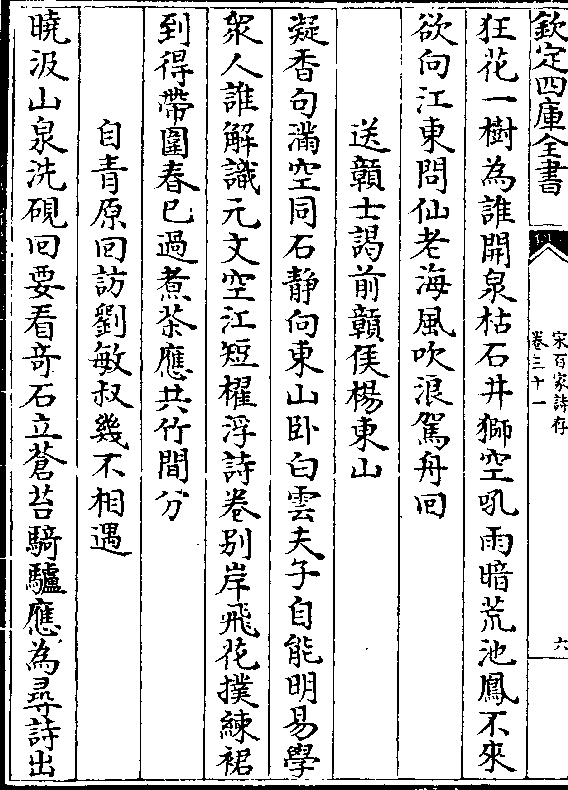 欽定四庫全書
宋百家詩存
卷三十一
六
狂花一樹為誰開泉枯石井獅空吼雨暗荒池鳳不來
欲向江東問仙老海風吹浪駕舟回
送贛士謁前贛侯楊東山
凝香句滿空同石靜向東山卧白雲夫子自能明易學
衆人誰解識元文空江短櫂浮詩卷别岸飛花撲練裙
到得帶圍春已過煮茶應共竹間分
自青原回訪劉敏叔幾不相遇
曉汲山泉洗硯回要看奇石立蒼苔騎驢應為尋詩出